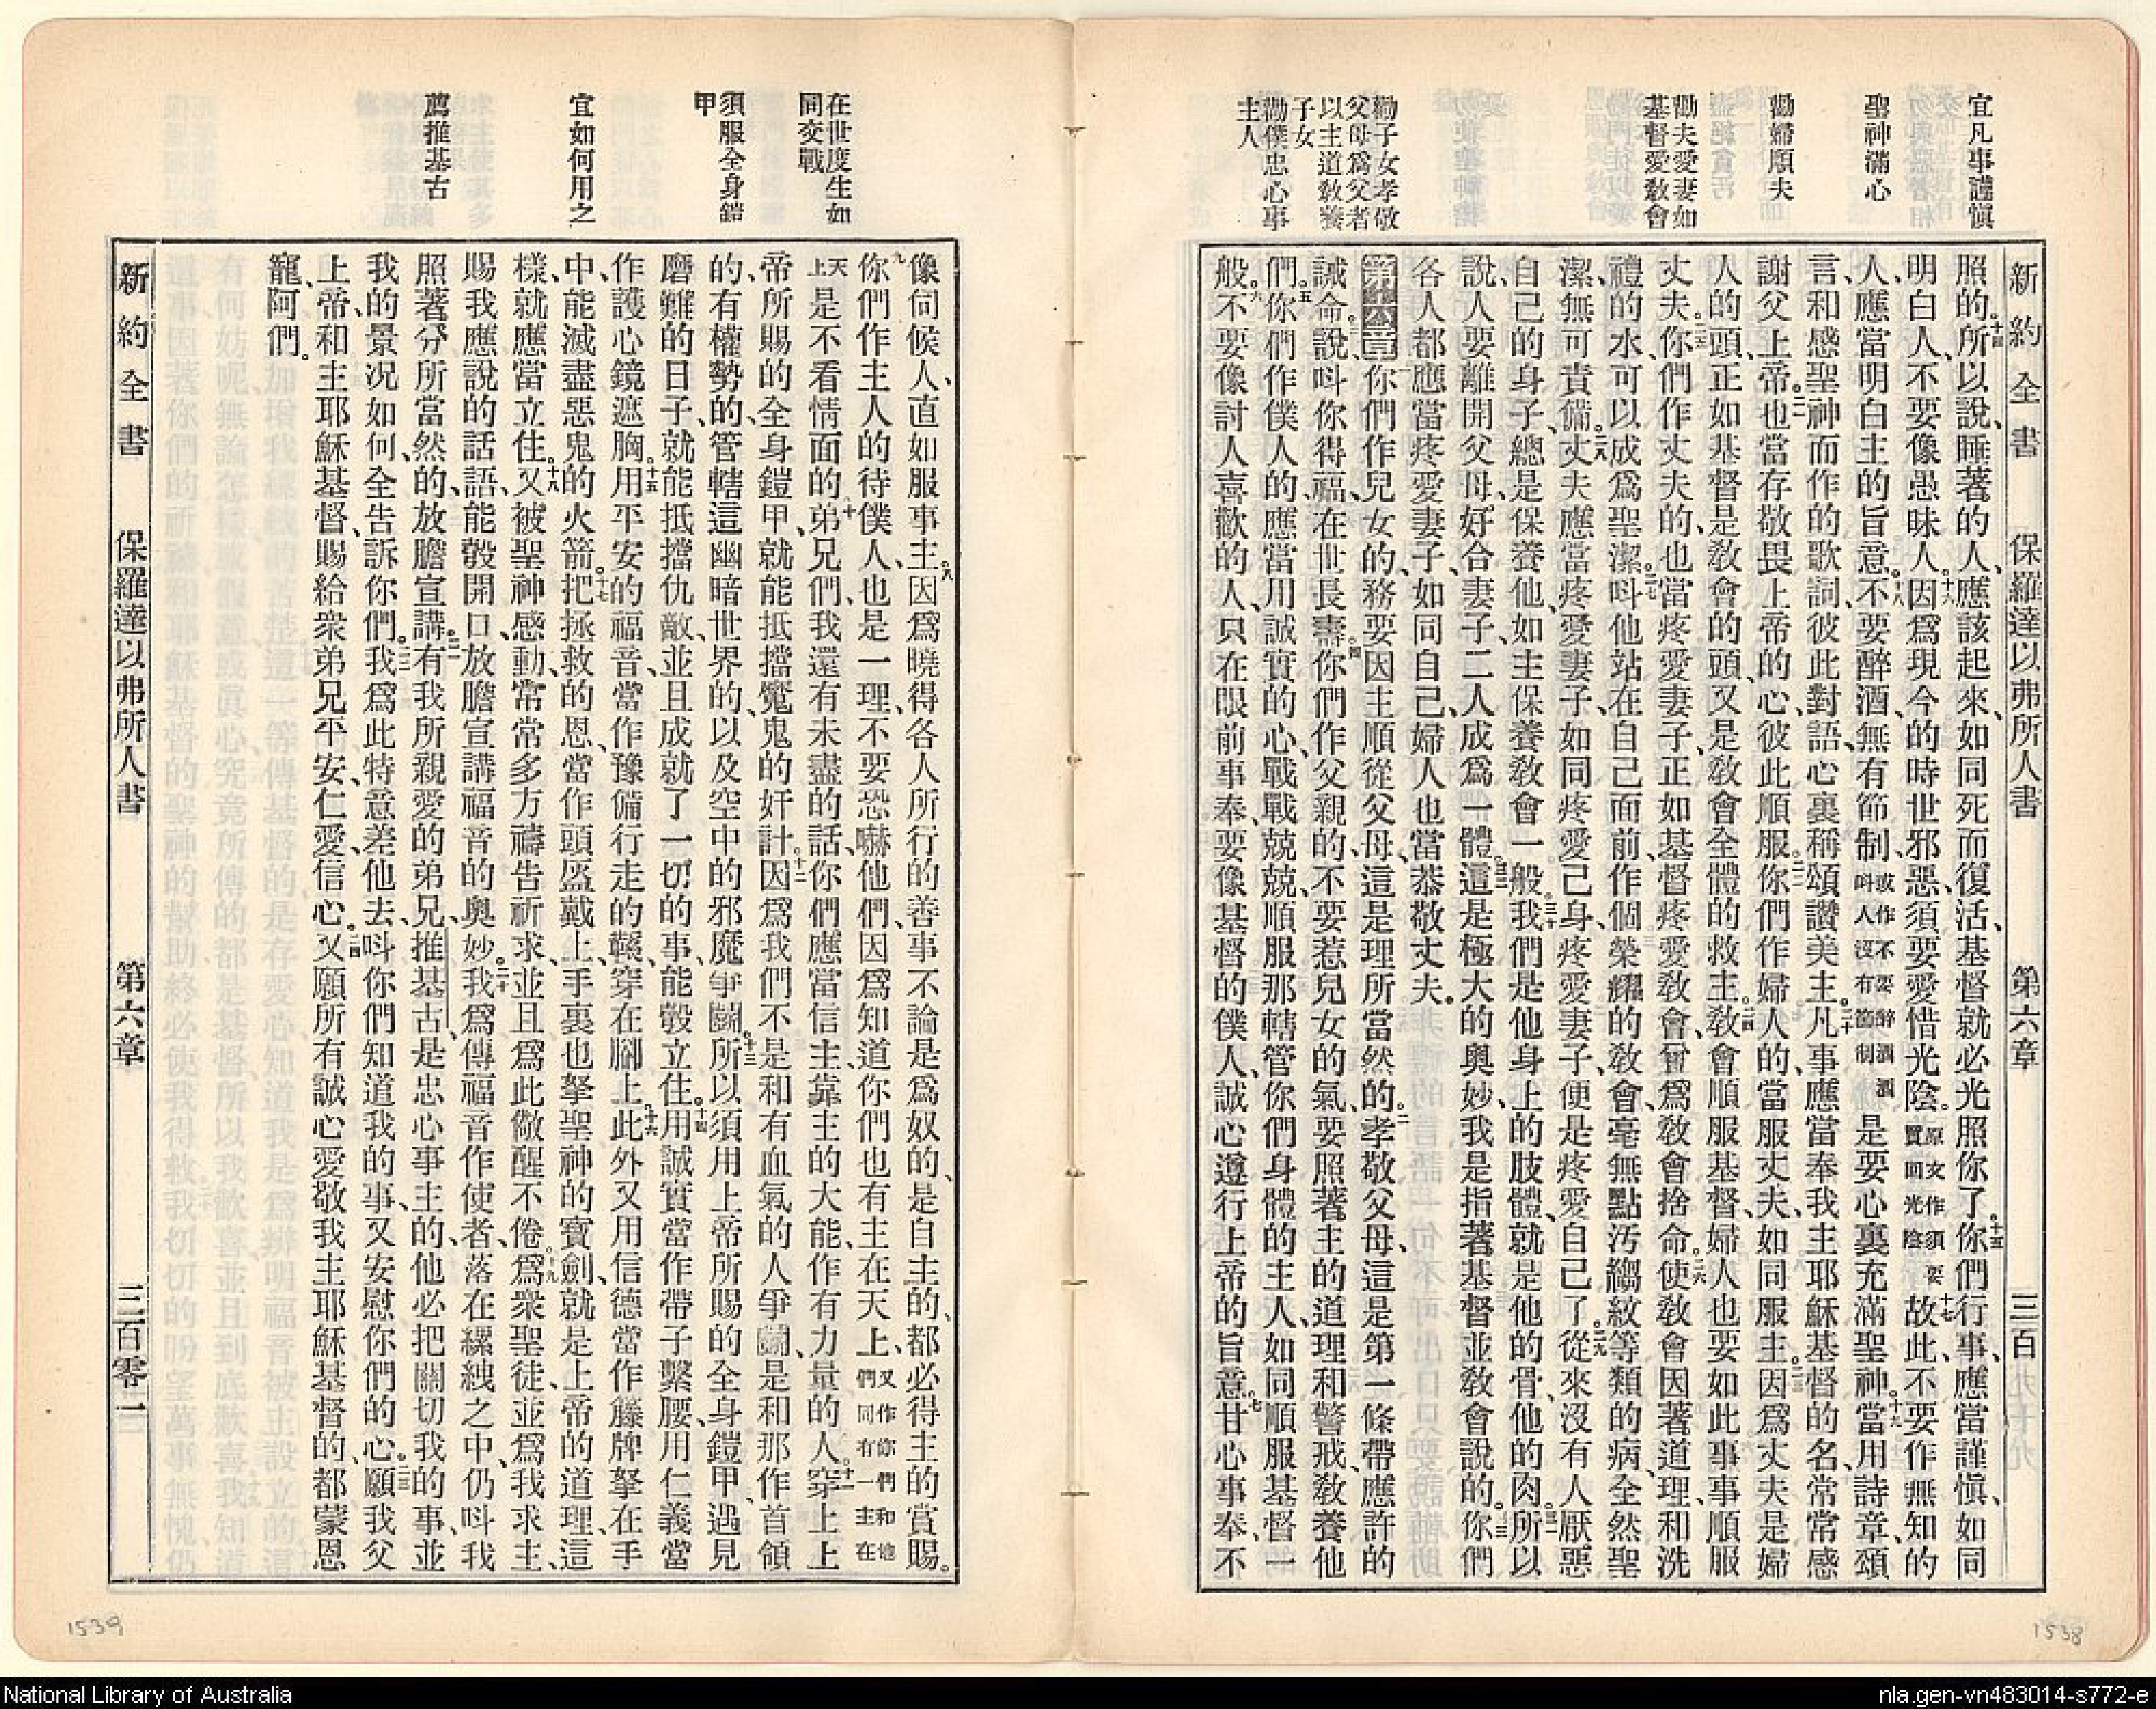 宜凡事謹愼
聖神滿心
勸婦順夫
勸夫愛妻如
基督愛敎會
勸子女孝敬
父母爲父者
以主道敎養
子女
勸僕忠心事
主人
新約全書 保羅達以弗所人書 第六章 三百
照的。十四所以說、睡著的人、應該起來、如同死而復活、基督就必光照你了。十五你們行事、應當謹愼、如同
明白人、不要像愚昧人。十六因爲現今的時世邪惡、須要愛惜光陰。原文作須要買回光陰十七故此、不要作無知的
人、應當明白主的旨意。十八不要醉酒、無有節制、或作不要醉酒酒呌人沒有節制是要心裏充滿聖神。十九當用詩章、頌
言、和感聖神而作的歌詞、彼此對語、心裏稱頌讚美主。二十凡事應當奉我主耶穌基督的名、常常感
謝父上帝。二一也當存敬畏上帝的心、彼此順服。二二你們作婦人的、當服丈夫、如同服主。二三因爲丈夫是婦
人的頭、正如基督是敎會的頭、又是敎會全體的救主。二四敎會順服基督、婦人也要如此事事順服
丈夫。二五你們作丈夫的、也當疼愛妻子、正如基督疼愛敎會、曾爲敎會捨命。二六使敎會因著道理、和洗
禮的水、可以成爲聖潔。二七呌他站在自己面前、作個榮耀的敎會、毫無點汚縐紋等類的病、全然聖
潔、無可責備。二八丈夫應當疼愛妻子、如同疼愛己身、疼愛妻子、便是疼愛自己了。二九從來沒有人厭惡
自己的身子、總是保養他、如主保養敎會一般。三十我們是他身上的肢體、就是他的骨、他的肉。三一所以
說、人要離開父母、好合妻子、二人成爲一體。三二這是極大的奧妙、我是指著基督並敎會說的。三三你們
各人都應當疼愛妻子、如同自己、婦人也當恭敬丈夫。
第六章一你們作兒女的、務要因主順從父母、這是理所當然的。二孝敬父母、這是第一條帶應許的
誡命。三說呌你得福、在世長壽。四你們作父親的、不要惹兒女的氣、要照著主的道理和警戒、敎養他
們。五你們作僕人的、應當用誠實的心、戰戰兢兢、順服那轄管你們身體的主人、如同順服基督一
般。六不要像討人喜歡的人、只在眼前事奉、要像基督的僕人、誠心遵行上帝的旨意。七甘心事奉、不
1538
在世度生如
同交戰
須服全身鎧
甲
宜如何用之
薦推基古
像伺候人、直如服事主。八因爲曉得各人所行的善事、不論是爲奴的、是自主的、都必得主的賞賜。
九你們作主人的待僕人、也是一理、不要恐嚇他們、因爲知道你們也有主在天上、又作你們和他們同有一主在
天上是不看情面的。十弟兄們、我還有未盡的話、你們應當信主、靠主的大能、作有力量的人。十一穿上上
帝所賜的全身鎧甲、就能抵擋魔鬼的奸計。十二因爲我們不是和有血氣的人爭鬬、是和那作首領
的、有權勢的、管轄這幽暗世界的、以及空中的邪魔爭鬬。十三所以須用上帝所賜的全身鎧甲、遇見
磨難的日子、就能抵擋仇敵、並且成就了一切的事、能彀立住。十四用誠實當作帶子繫腰、用仁義當
作護心鏡遮胸。十五用平安的福音、當作豫備行走的鞵、穿在腳上。十六此外又用信德當作籐牌、拏在手
中、能滅盡惡鬼的火箭。十七把拯救的恩、當作頭盔戴上、手裏也拏聖神的寶劍、就是上帝的道理、這
樣、就應當立住。十八又被聖神感動、常常多方禱告祈求、並且爲此儆醒不倦。十九爲衆聖徒、並爲我求主、
賜我應說的話語、能彀開口、放膽宣講福音的奧妙。二十我爲傳福音作使者、落在縲絏之中、仍呌我
照著分所當然的、放膽宣講。二一有我所親愛的弟兄、推基古、是忠心事主的、他必把關切我的事、並
我的景况如何、全告訴你們。二二我爲此特意差他去、呌你們知道我的事、又安慰你們的心。二三願我父
上帝、和主耶穌基督、賜給衆弟兄平安、仁愛、信心。二四又願所有誠心愛敬我主耶穌基督的、都蒙恩
寵、阿們。
新約全書 保羅達以弗所人書 第六章 三百零一
1539
National Library of Australia
nla.gen-vn483014-s772-e